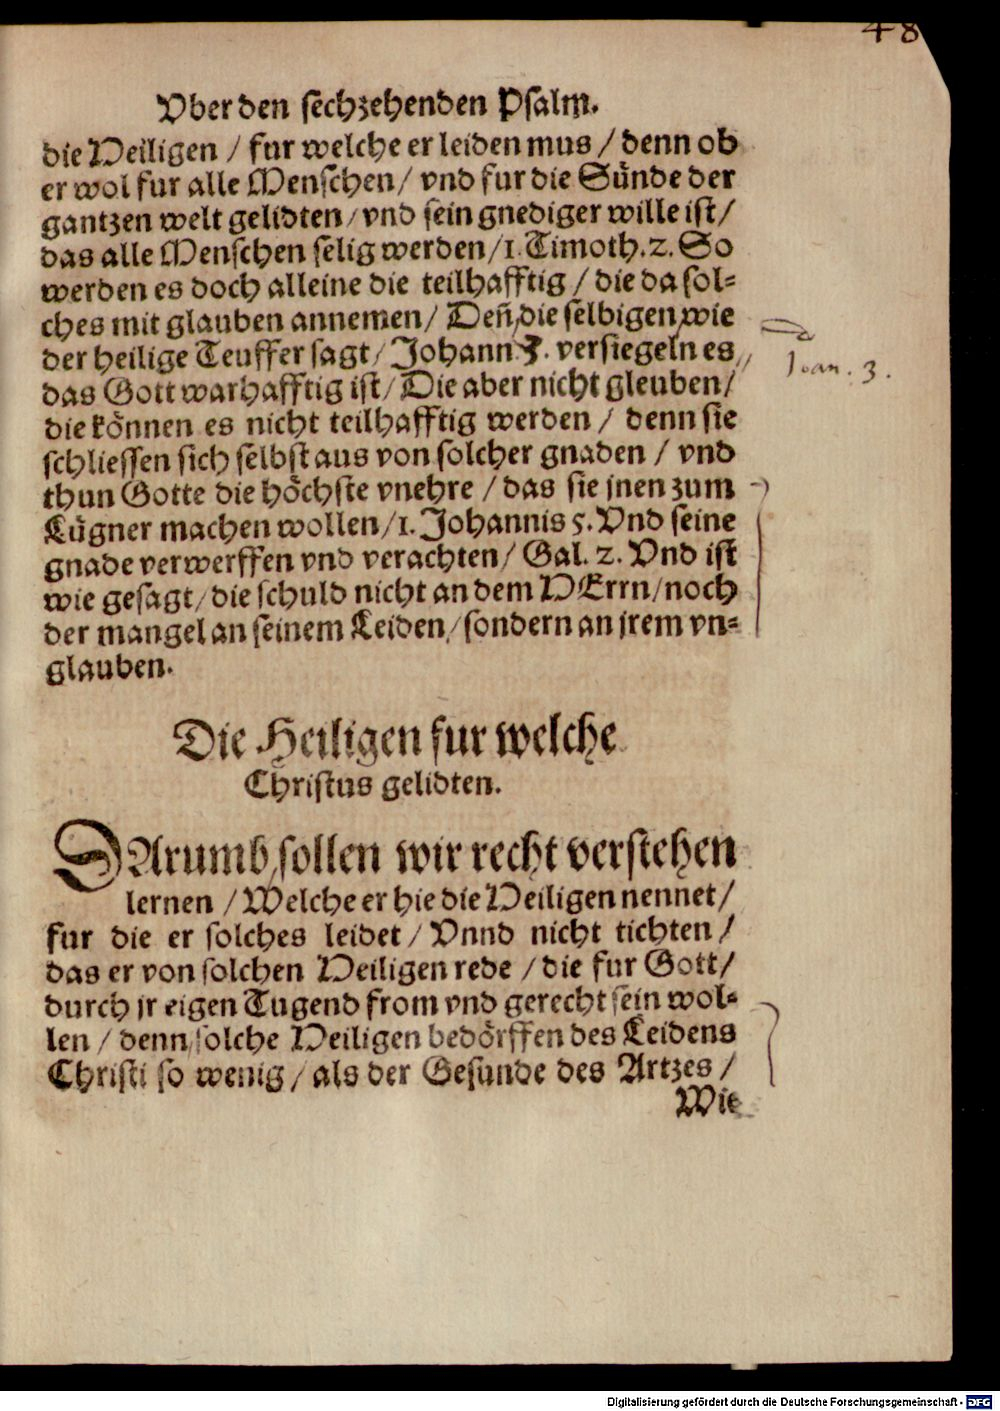 48
Vber den sechzehenden Psalm.
die Heiligen / fur welche er leiden mus / denn ob
er wol fur alle Menschen / vnd fur die Sünde der
gantzen welt gelidten / vnd sein gnediger wille ist /
das alle Menschen selig werden / 1. Timoth. 2. So
werden es doch alleine die teilhafftig / die da sol-
ches mit glauben annemen / Deñ die selbigen wie
der heilige Teuffer sagt / Johann 3. versiegeln es
das Gott warhafftig ist / Die aber nicht gleuben /
die können es nicht teilhafftig werden / denn sie
schliessen sich selbst aus von solcher gnaden / vnd
thun Gotte die höchste vnehre / das sie jnen zum
Lügner machen wollen / 1. Johannis 5. Vnd seine
gnade verwerffen vnd verachten / Gal. 2. Vnd ist
wie gesagt / die schuld nicht an dem HErrn / noch
der mangel an seinem Leiden / sondern an jrem vn-
glauben.
Joan. 3.
Die Heiligen fur welche
Christus gelidten.
DArumb sollen wir recht verstehen
lernen / Welche er hie die Heiligen nennet /
fur die er solches leidet / Vnnd nicht tichten /
das er von solchen Heiligen rede / die fur Gott /
durch jr eigen Tugend from vnd gerecht sein wol-
len / denn solche Heiligen bedörffen des Leidens
Christi so wenig / als der Gesunde des Artzes /
Wie
Digitalisierung gefördert durch die Deutsche Forschungsgemeinschaft - DFG